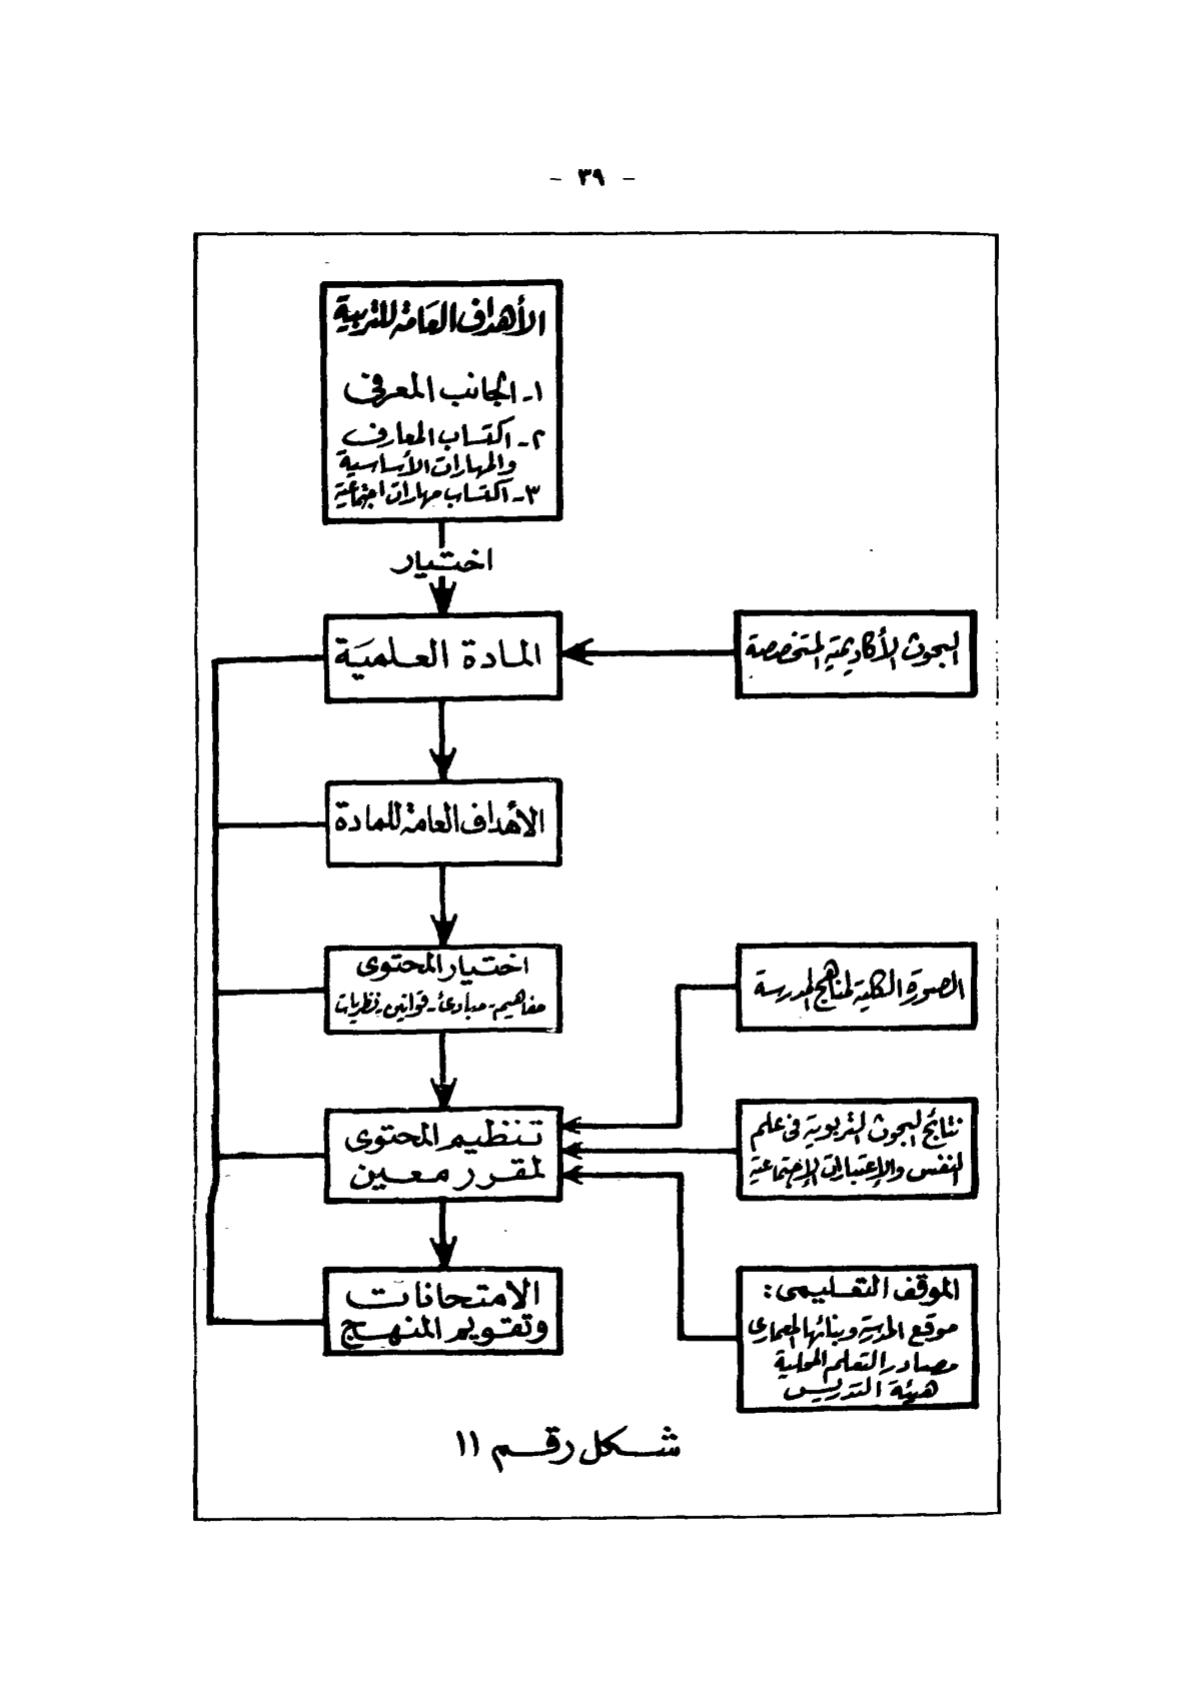 - ٣٩ -
الأهداف العامة للتربية
١- الجانب المعرفى
٢- اكتساب المعارف
والمهارات الأساسية
٣- اكتساب مهارات اجتماعية
اختيار
المادة العلمية
البحوث الأكاديمية المتخصصة
الأهداف العامة للمادة
اختيار المحتوى
مفاهيم - مبادئ - قوانين - نظريات
الصورة الكلية لمناهج المدرسة
تنظيم المحتوى
لمقرر معين
نتائج البحوث التربوية فى علم
النفس والاعتبارات الاجتماعية
الامتحانات
وتقويم المنهج
الموقف التعليمى :
موقع المدرسة وبنائها المعمارى
مصادر التعلم المحلية
هيئة التدريس
شكل رقم ١١